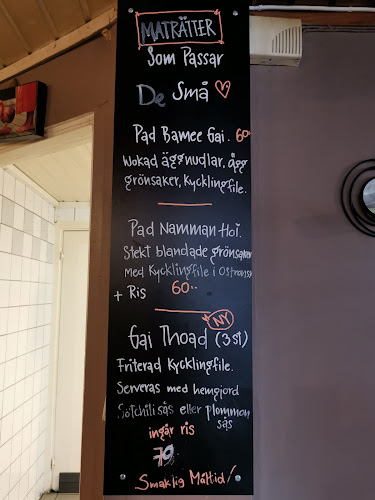 MATRÄTTER
Som Passar
De Små
Pad Bamee Gai. 60
Wokad äggnudlar, ägg
grönsaker, Kycklingfile.
Pad Namman Hoi.
Stekt blandade grönsaker
med Kycklingfile i Ostronså
+ Ris 60:-
NY
Gai Thoad (3 st)
Friterad Kycklingfile.
Serveras med hemgjord
Sötchili sås eller plommon
sås
ingår ris
70
Smaklig Måltid!